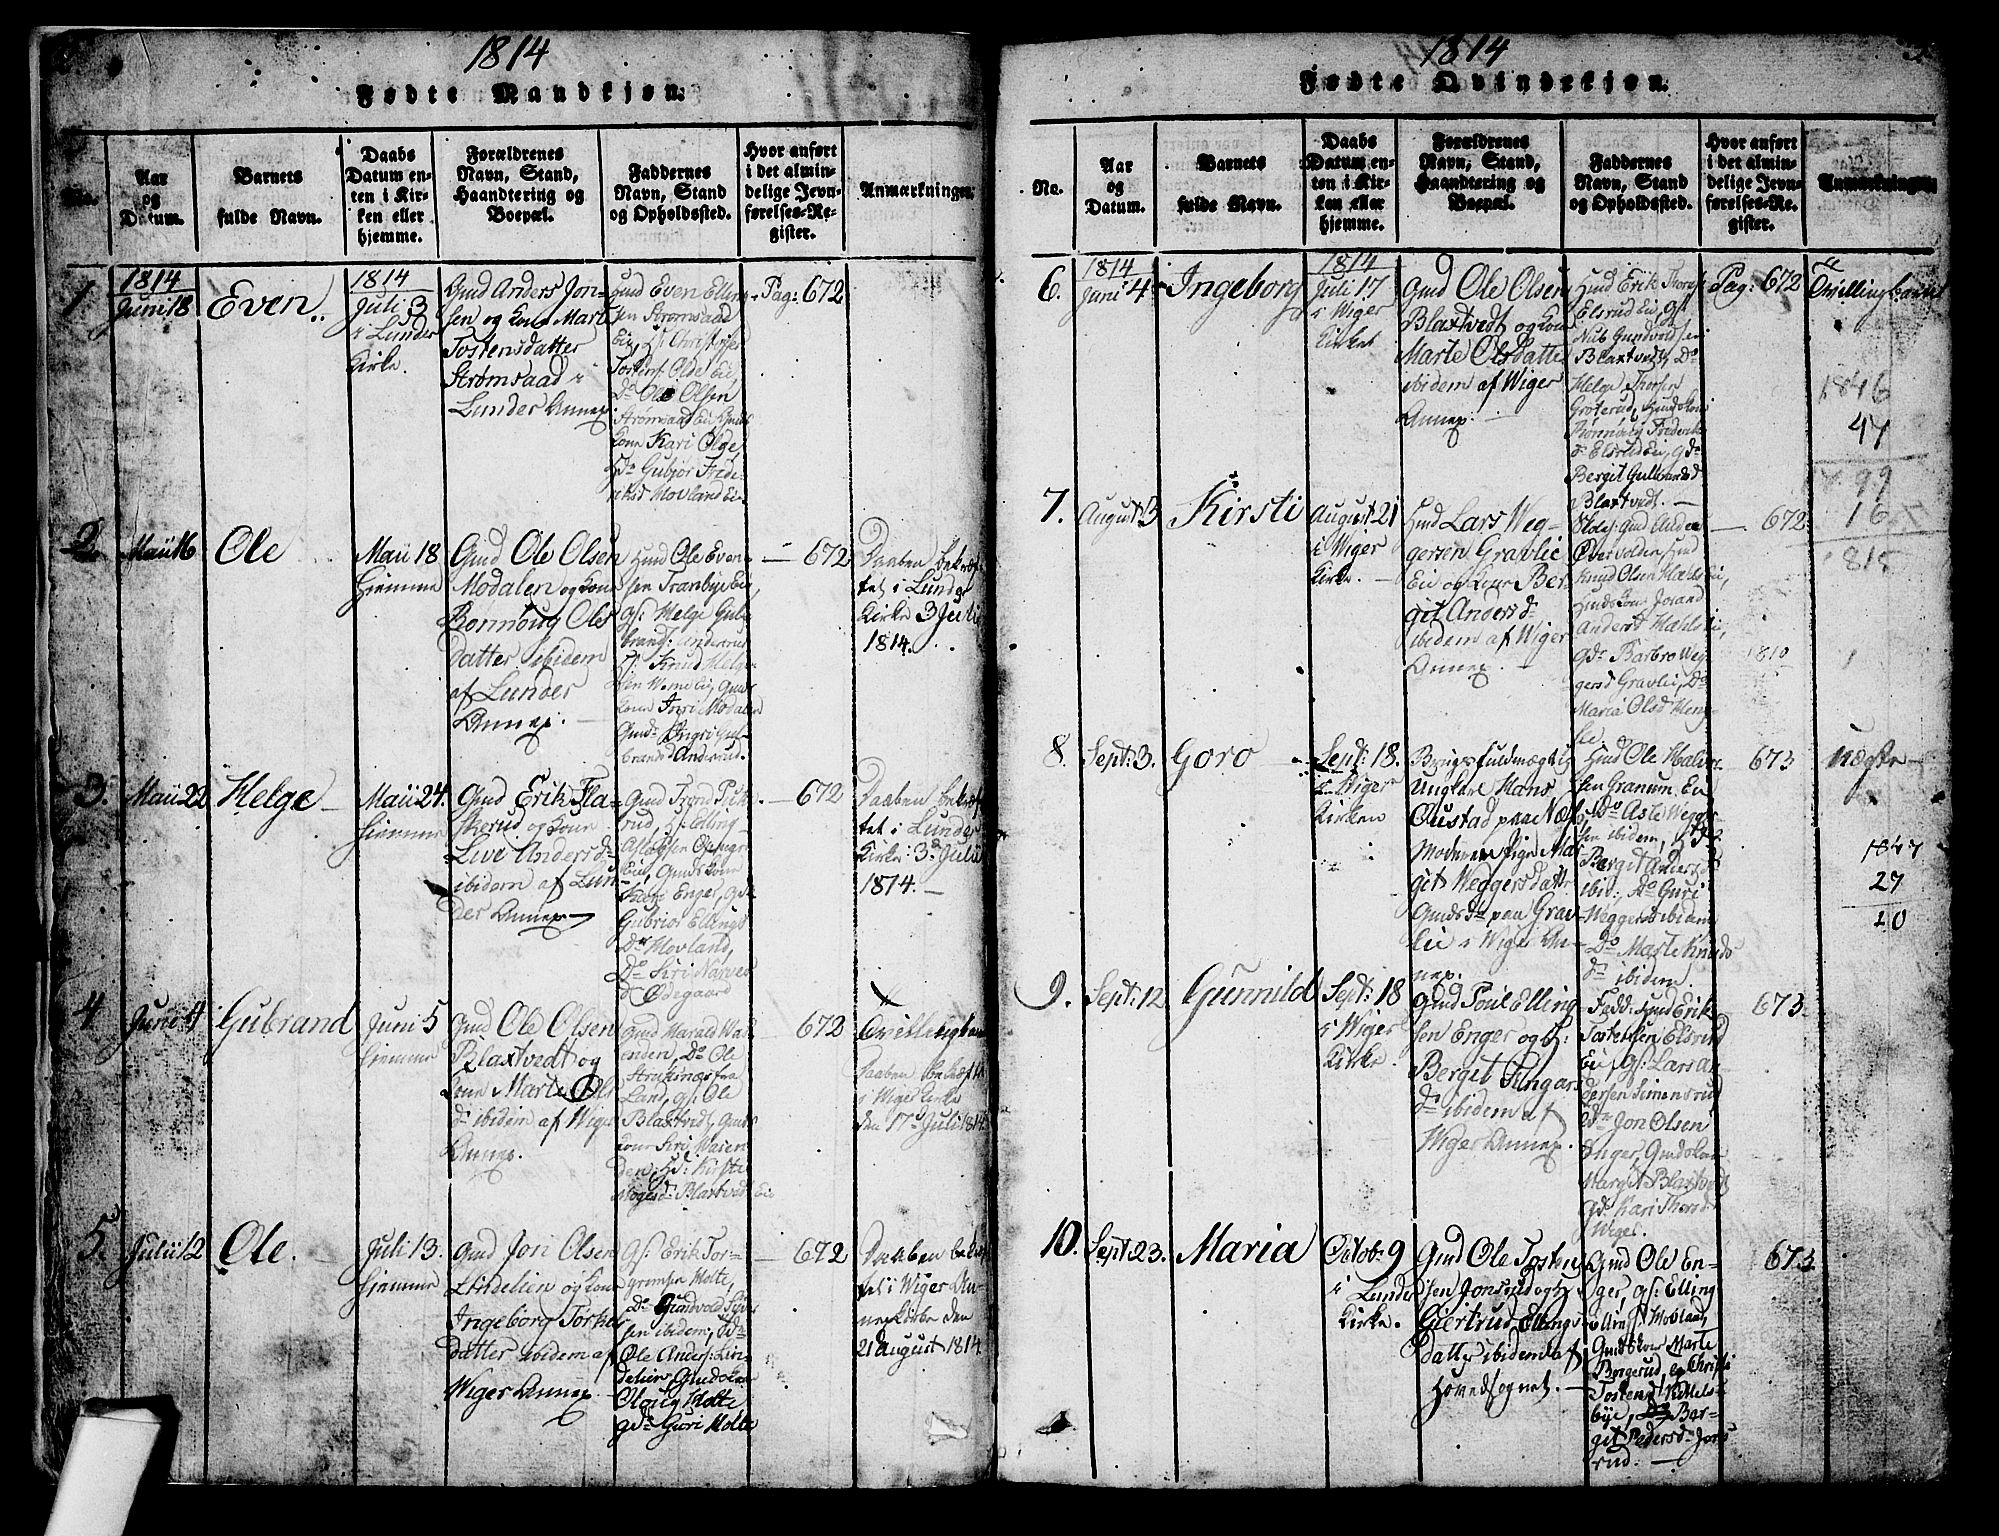 1814
Fødte Mandkjøn.
No.
Aar
og
Datum.
Barnets
fulde Navn.
Daabs
Datum en-
ten i Kir-
ken eller
hjemme.
Forældrenes
Navn, Stand,
Haandtering og
Boepæl.
Faddernes
Navn, Stand
og Opholdssted.
Hvor anført
i det almin-
delige Jevn-
førelses-Re-
gister.
Anmærkninger.
1
1814
Juni 18
Even
1814
Juli 3
i Lunder
Kirke.
Gmd Anders Jon-
sen og Kone Mari
Tostensdatter
Strømsaad i
Lunder Annex.
Hmd Even Elling-
sen Strømsaad
Eie,
Olde Eie
Do Ole Olsen
Strømsaad Eie
Kone Kari Olde,
Hds Gubjør Frede-
riksd Movland Eie.
Pag: 672
2
Maii 16
Ole
Maii 18
Hjemme
Gmd Ole Olsen
Modalen og Kone
Rønnoug Ols
datter ibidem
af Lunder
Annex.
Hmd Ole Even-
sen Tranbye Eie,
gs: Helge Gul-
brands:
Knud Helge-
sen
Kone Modalen
Ingri Gul-
brandsd Anderud.
672
Daaben bekræf-
tet i Lunder
Kirke 3 Juli
1814.
3.
Maii 22
Helge
Maii 24.
Hjemme
Gmd Erik Fla-
skerud og Kone
Live Andersd.
ibidem af Lun-
der Annex
Gmd Trond Puk-
rud, Elling
Eie, Gmds Kone
Enger,
Gubriør Ellings
Dr Movland,
Do Siri Narves
d. Ødegaard
672
Daaben bekræf-
tet i Lunder
Kirke 3d Julii
1814.
4
Juni 4
Gubrand
Juni 5
Hjemme
Gmd Ole Olsen
Blaxtvedt og
Kone Marte Ols
d. ibidem af Wiger
Annex.
Gmd Harald Wa-
enden, Do Ole
fra
Land, gs: Ole
Blaxtvedt, Gmds
Kone Siri Waien
den, Hd: Kirsti
Mogensd. Blaxtvedt Eie
672
Tvillingbarn
Daaben bekræft
i Wiger Kirke
den 17 Juli 1814.
5.
Julii 12
Ole.
Juli 13.
Hjemme
Gmd Jon Olsen
Lindelien og Kone
Ingeborg Torkel
datter ibidem af
Wiger Annex.
Gs: Erik Tor-
grimsen Molte,
Do Gundvold Siver
sen ibidem,
Ole Anders: Lin-
delien Gmdskone
Oloug Molte
gd. Guri Molte
672
Daaben bekræf-
tet i Wiger An-
nex Kirke den
21 August 1814.
1814
Fødte Qvindekjøn.
No.
Aar
og
Datum.
Barnets
fulde Navn.
Daabs
Datum en-
ten i Kir-
ken eller
hjemme.
Forældrenes
Navn, Stand,
Haandtering og
Boepæl.
Faddernes
Navn, Stand
og Opholdssted.
Hvor anført
i det almin-
delige Jevn-
førelses-Re-
gister.
Anmærkninger.
6.
1814
Juni 4.
Ingeborg
1814
Juli 17
i Wiger
Kirke
Gmd Ole Olsen
Blaxtvedt og Kone
Marte Olsdatter
ibidem af Wiger
Annex.
Hmd Erik Thors
Elsrud Eie, gs
Nub Gundvoldsen
Blaxtvedt, Do
Helge Thorsen
Groterud, Hmdskone
Frederik
d. Elsrud Ei, gd.
Bergit Gulbrandsd
Blaxtvedt.
Pag: 672
Tvillingbarn
1846
47
99
16
815
7.
August 3
Kirsti
August 21
i Wiger
Kirke.
Hmd Lars Weg-
gersen Gravlie
Eie og Kone Ber-
git Andersd.
ibidem af Wiger
Annex.
Gmd Ander
Overvolden, Hmd
Knud Olsen Hælslei,
Hmdskone Jorand
Andersd. Hælslei,
gd. Barbro Weg-
gersd Gravlei, Do
Maria Olsd Heng-
lee.
672
1810
8.
Sept: 3.
Goro
Sept: 18.
i Wiger
Kirken
Brugsfuldmægtig
Ungkarl Hans
Oustad paa Næs
Moderen Pige Mar
git Weggersdatter
Gmds dr paa Grav-
lie i Wiger An-
nex.
Hmd Ole Halvor-
sen Granum, Eie
Do Asle Wegger
sen ibidem,
Bergit Andersd
ibid:, Do Guri
Weggersd ibidem
Do Marte Knuds
d. ibidem.
673
Uægte
1847
27
20
9.
Sept: 12
Gunnild
Sept: 18
i Wiger
Kirke.
Gmd Poul Elling
sen Enger og H:
Bergit Tingar
d. ibidem af
Wiger Annex.
Fadd: Hmd Erik
Tostensen Elsrud
Eie, gs: Lars An-
dersen Simensrud
Do Jon Olsen
Enger, Gmdskone
Margit Blaxtvedt
gd Kari Thorsd
Wiger.
673
10.
Sept: 23.
Maria
Octob: 9
i Lunder
Kirke.
Gmd Ole Tosten
sen Jonsrud og H:
Giertrud Ellings
datter ibidem af
Hovedsognet.
Gmd Ole En-
ger, gs: Elling
Oliv: Movland,
Gmdskone Marte
Borgerud, og Christi
Tostensd Kittels-
bye, Do Bar-
git Pedersd Jons
rud.
673